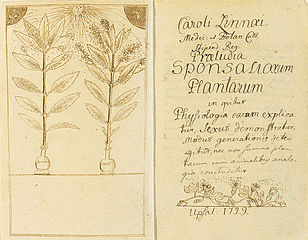 Caroli Linnæi
Medic. & Botan. Cult.
Stipend. Reg.
Præludia
Sponsaliorum
Plantarum
in quibus
Physiologia earum explica
tur, Sexus demonstratur
modus generationis dete
gitur, nec non summa plan
tarum cum animalibus analo
gia concluditur
Upsal. 1729.